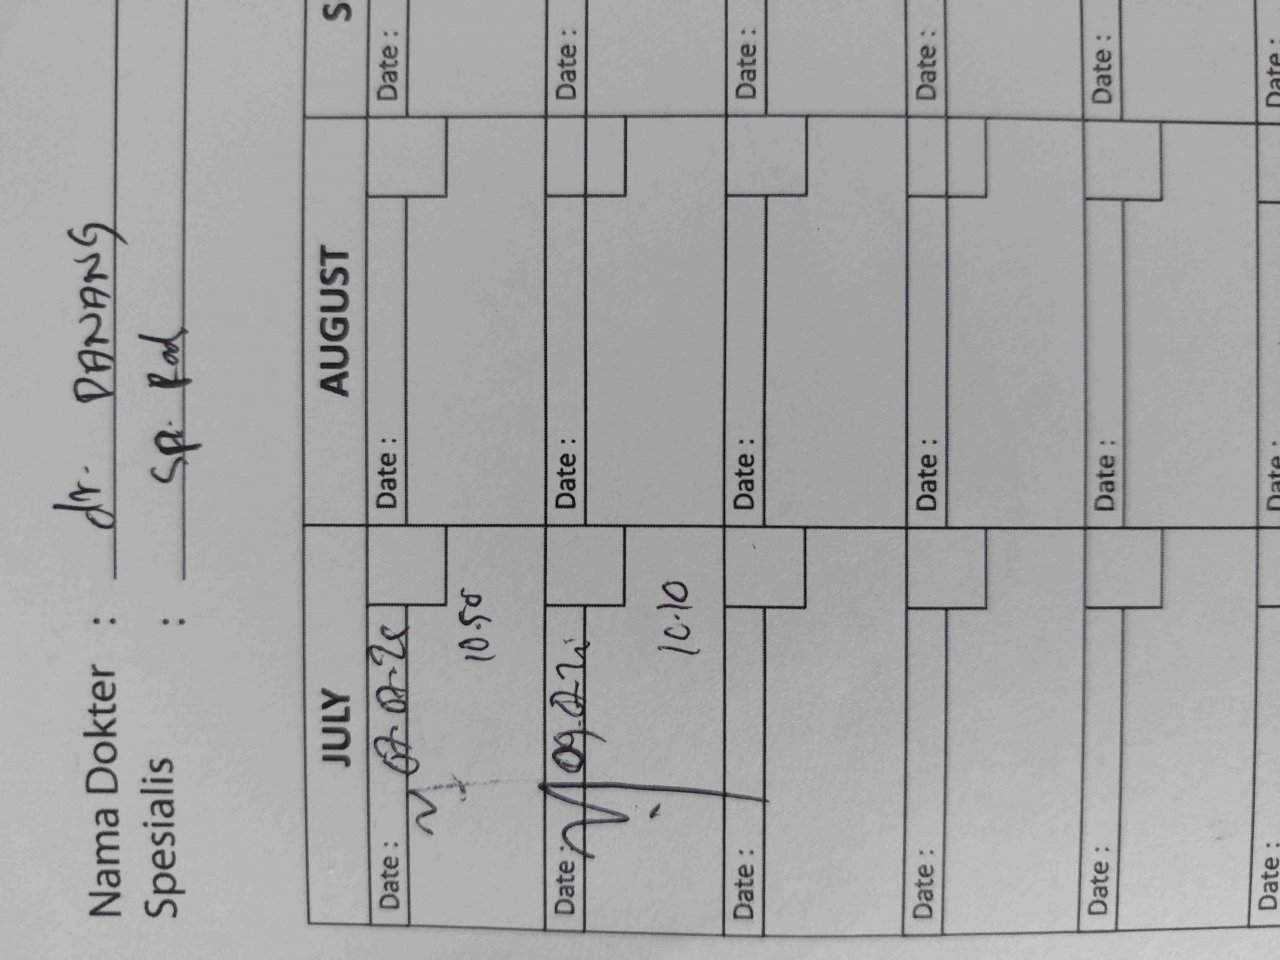 Nama Dokter : dr. DANANG
Spesialis : Sp. Rad
JULY AUGUST S
Date : Date : Date :
10.50
Date : 09.07.2 Date : Date :
10.10
Date : Date : Date :
Date : Date : Date :
Date : Date : Date :
Date : Date : Date :